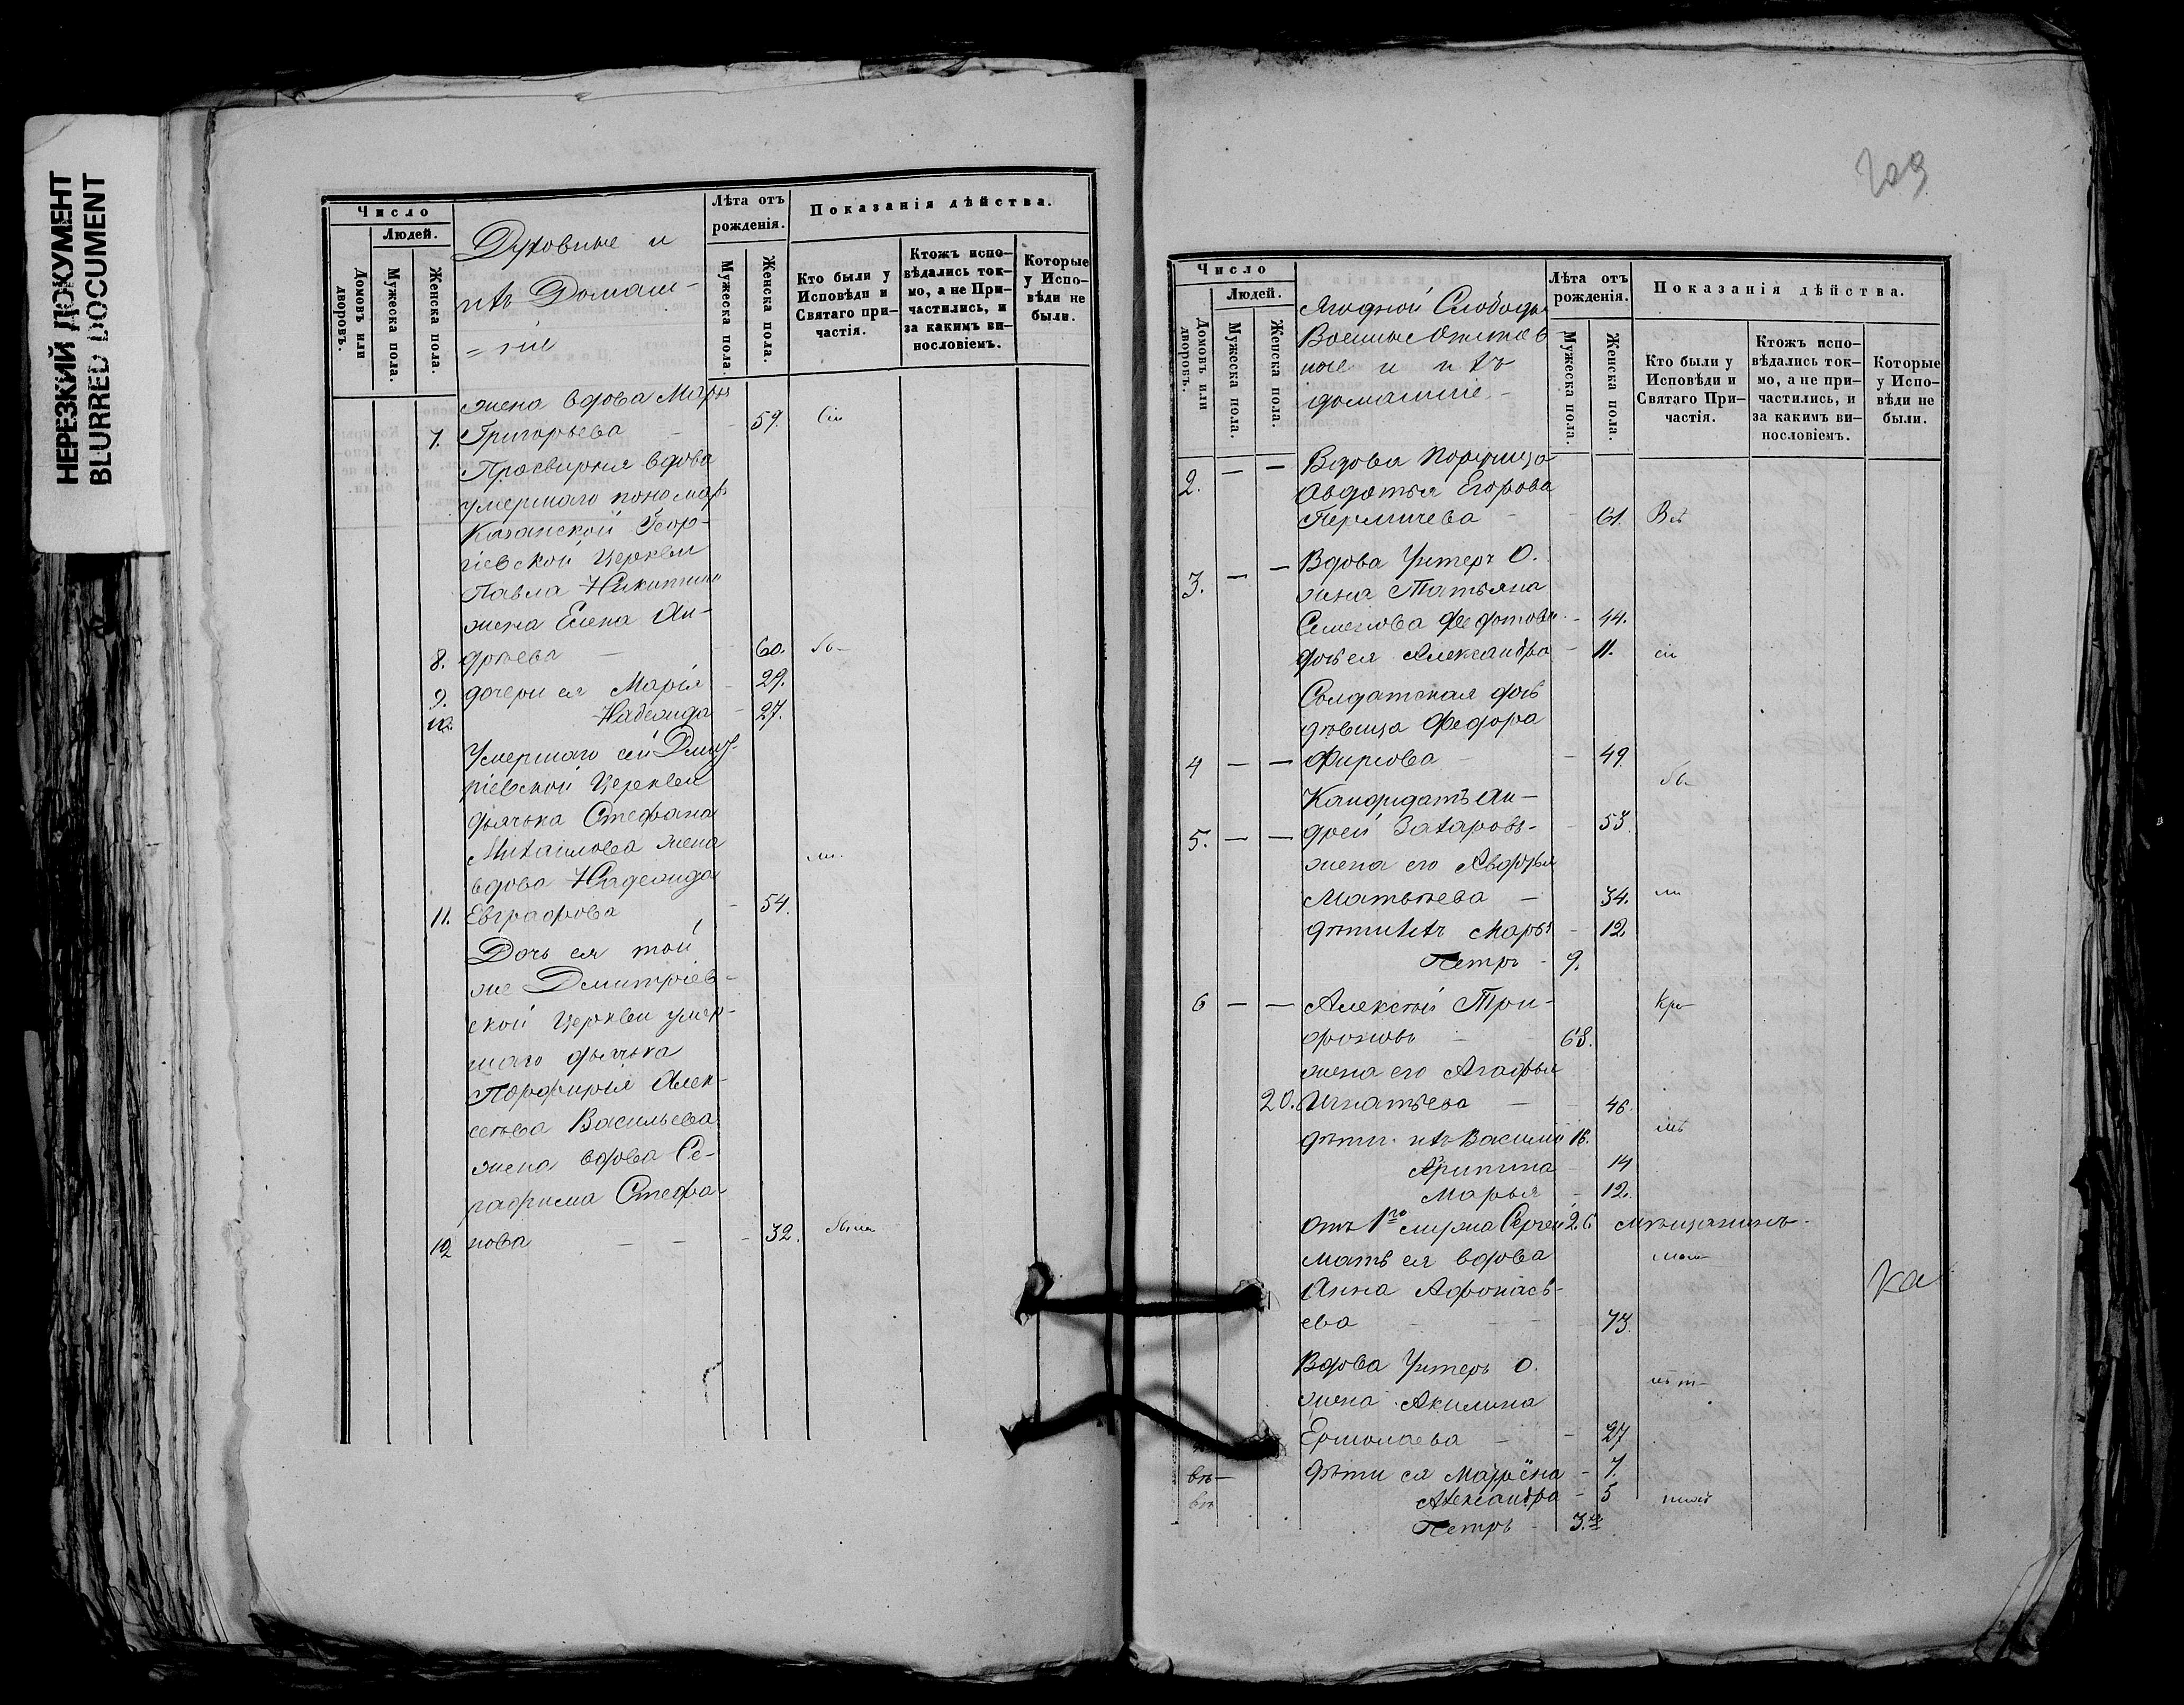 НЕРЕЗКИЙ ДОКУМЕНТ
BLURRED DOCUMENT
Число
Людей.
Домовъ или дворовъ.
Мужеска пола.
Женска пола.
Духовные и
ихъ Домаш-
=ніе
Лѣта отъ рожденія.
Мужеска пола.
Женска пола.
Показанія дѣйства.
Кто были у Исповѣди и Святаго при-частія.
Ктожъ испо-вѣдались ток-мо, а не При-частились, и за какимъ ви-нословіемъ.
Которые у Испо-вѣди не были.
жена вдова Марья
7. Григорьева - - 59.
Просвирня вдова
умершаго пономаря
Казанской Геор-
гіевской Церкви
Павла Никитина
жена Елена Ан-
8. дреева - - 60.
9. дочери ея Марія - 29.
10. Надежда - 27.
Умершаго сей Дмит-
ріевской Церкви
дьячька Стефана
Михайлова жена
вдова Надежда
11. Евграфова - 54.
Дочь ея той
же Дмитріев-
ской Церкви умер-
шаго дьячька
Порфирія Алек-
сеева Васильева
жена вдова Се-
рафима Стефа-
12 нова - - - 32. была
209
Число
Людей.
Домовъ или дворовъ.
Мужеска пола.
Женска пола.
Ягодной Слободы
Военные Отстав
ные и ихъ
домашніе.-
Лѣта отъ рожденія.
Мужеска пола.
Женска пола.
Показанія дѣйства.
Кто были у Исповѣди и Святаго При-частія.
Ктожъ испо-вѣдались ток-мо, а не при-частились, и за какимъ ви-нословіемъ.
Которые у Испо-вѣди не были.
2. - - Вдова
Авдотья Егорова
Пермичева - - 61.
3. - - Вдова Унтеръ О.
жена Татьяна
Семенова Федотова - 44.
дочь ея Александра - 11.
Солдатская дочь
дѣвица Федора
4 - - Фирсова - - 49.
Кандидатъ Ан-
5. - - дрей Захаровъ - - 53.
жена его Авдотья
Матвѣева - 34.
дѣти ихъ Марья - 12.
Петръ - 9.
6 - - Алексѣй Три-
фоновъ - 68.
жена его Агафья
20. Игнатьева - - 46.
дѣти ихъ Василій 16.
Арипина - 14
Марья - 12.
Отъ 1го мужа Сергей 26 мѣщанинъ.
мать ея вдова
Анна Афонась-
ева - - - 73.
Ка
Вдова Унтеръ О.
жена Акилина
Ермолаева - - 27
дѣти ея Матрёна - 7.
Александра - 5
Петръ - 3.